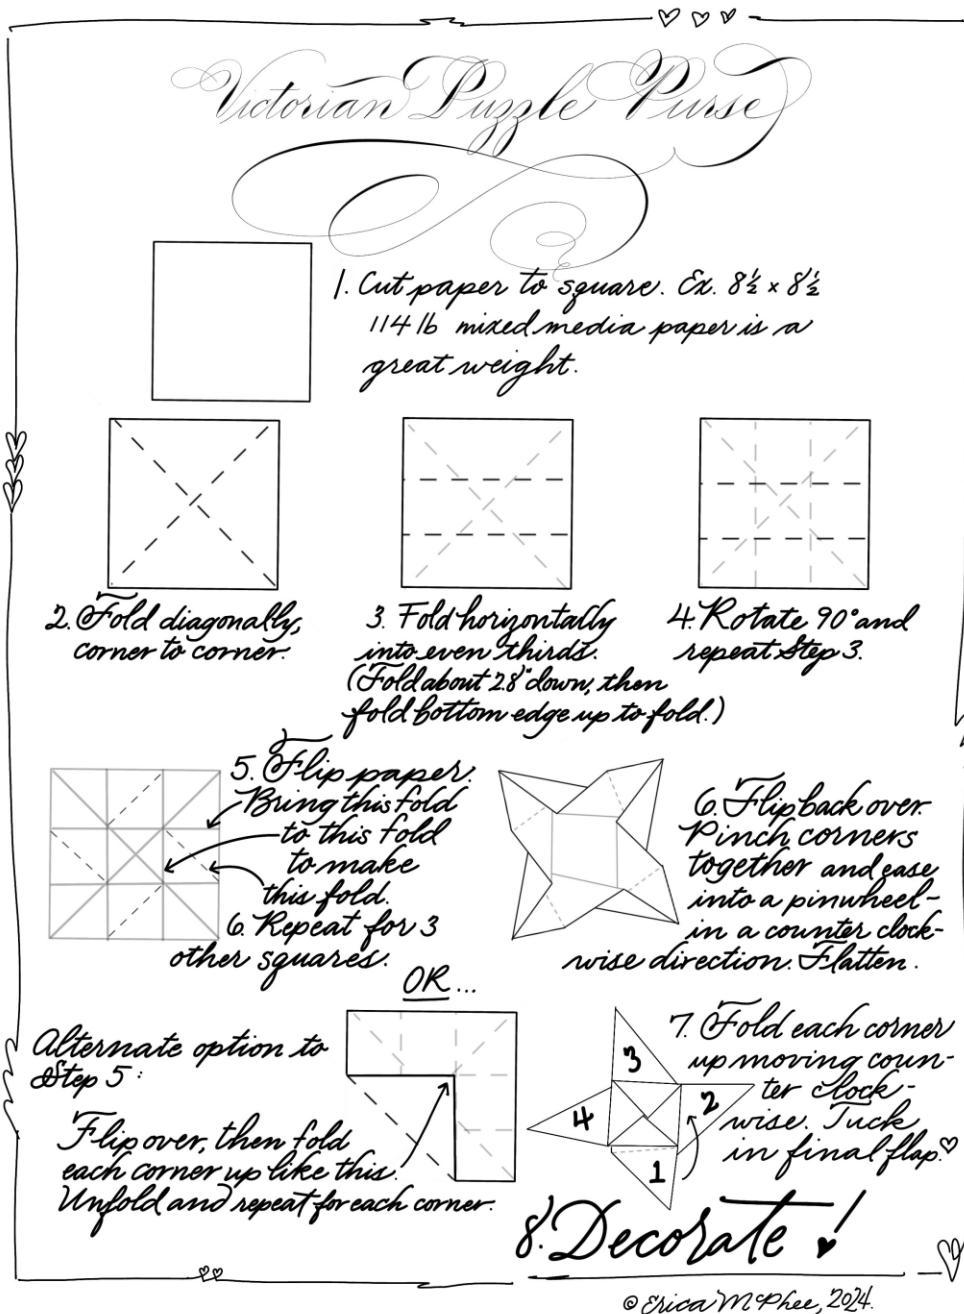 Victorian Puzzle Purse
1. Cut paper to square. Ex. 8½ x 8½
114 lb mixed media paper is a
great weight.
2. Fold diagonally,
corner to corner.
3. Fold horizontally
into even thirds.
(Fold about 2.8" down, then
fold bottom edge up to fold.)
4. Rotate 90° and
repeat Step 3.
5. Flip paper.
Bring this fold
to this fold
to make
this fold.
6. Repeat for 3
other squares.
6. Flip back over.
Pinch corners
together and ease
into a pinwheel-
in a counter clock-
wise direction. Flatten.
OR...
Alternate option to
Step 5:
Flip over, then fold
each corner up like this.
Unfold and repeat for each corner.
3
4
2
1
7. Fold each corner
up moving coun-
ter clock-
wise. Tuck
in final flap.
8. Decorate!
© Erica McPhee, 2024.